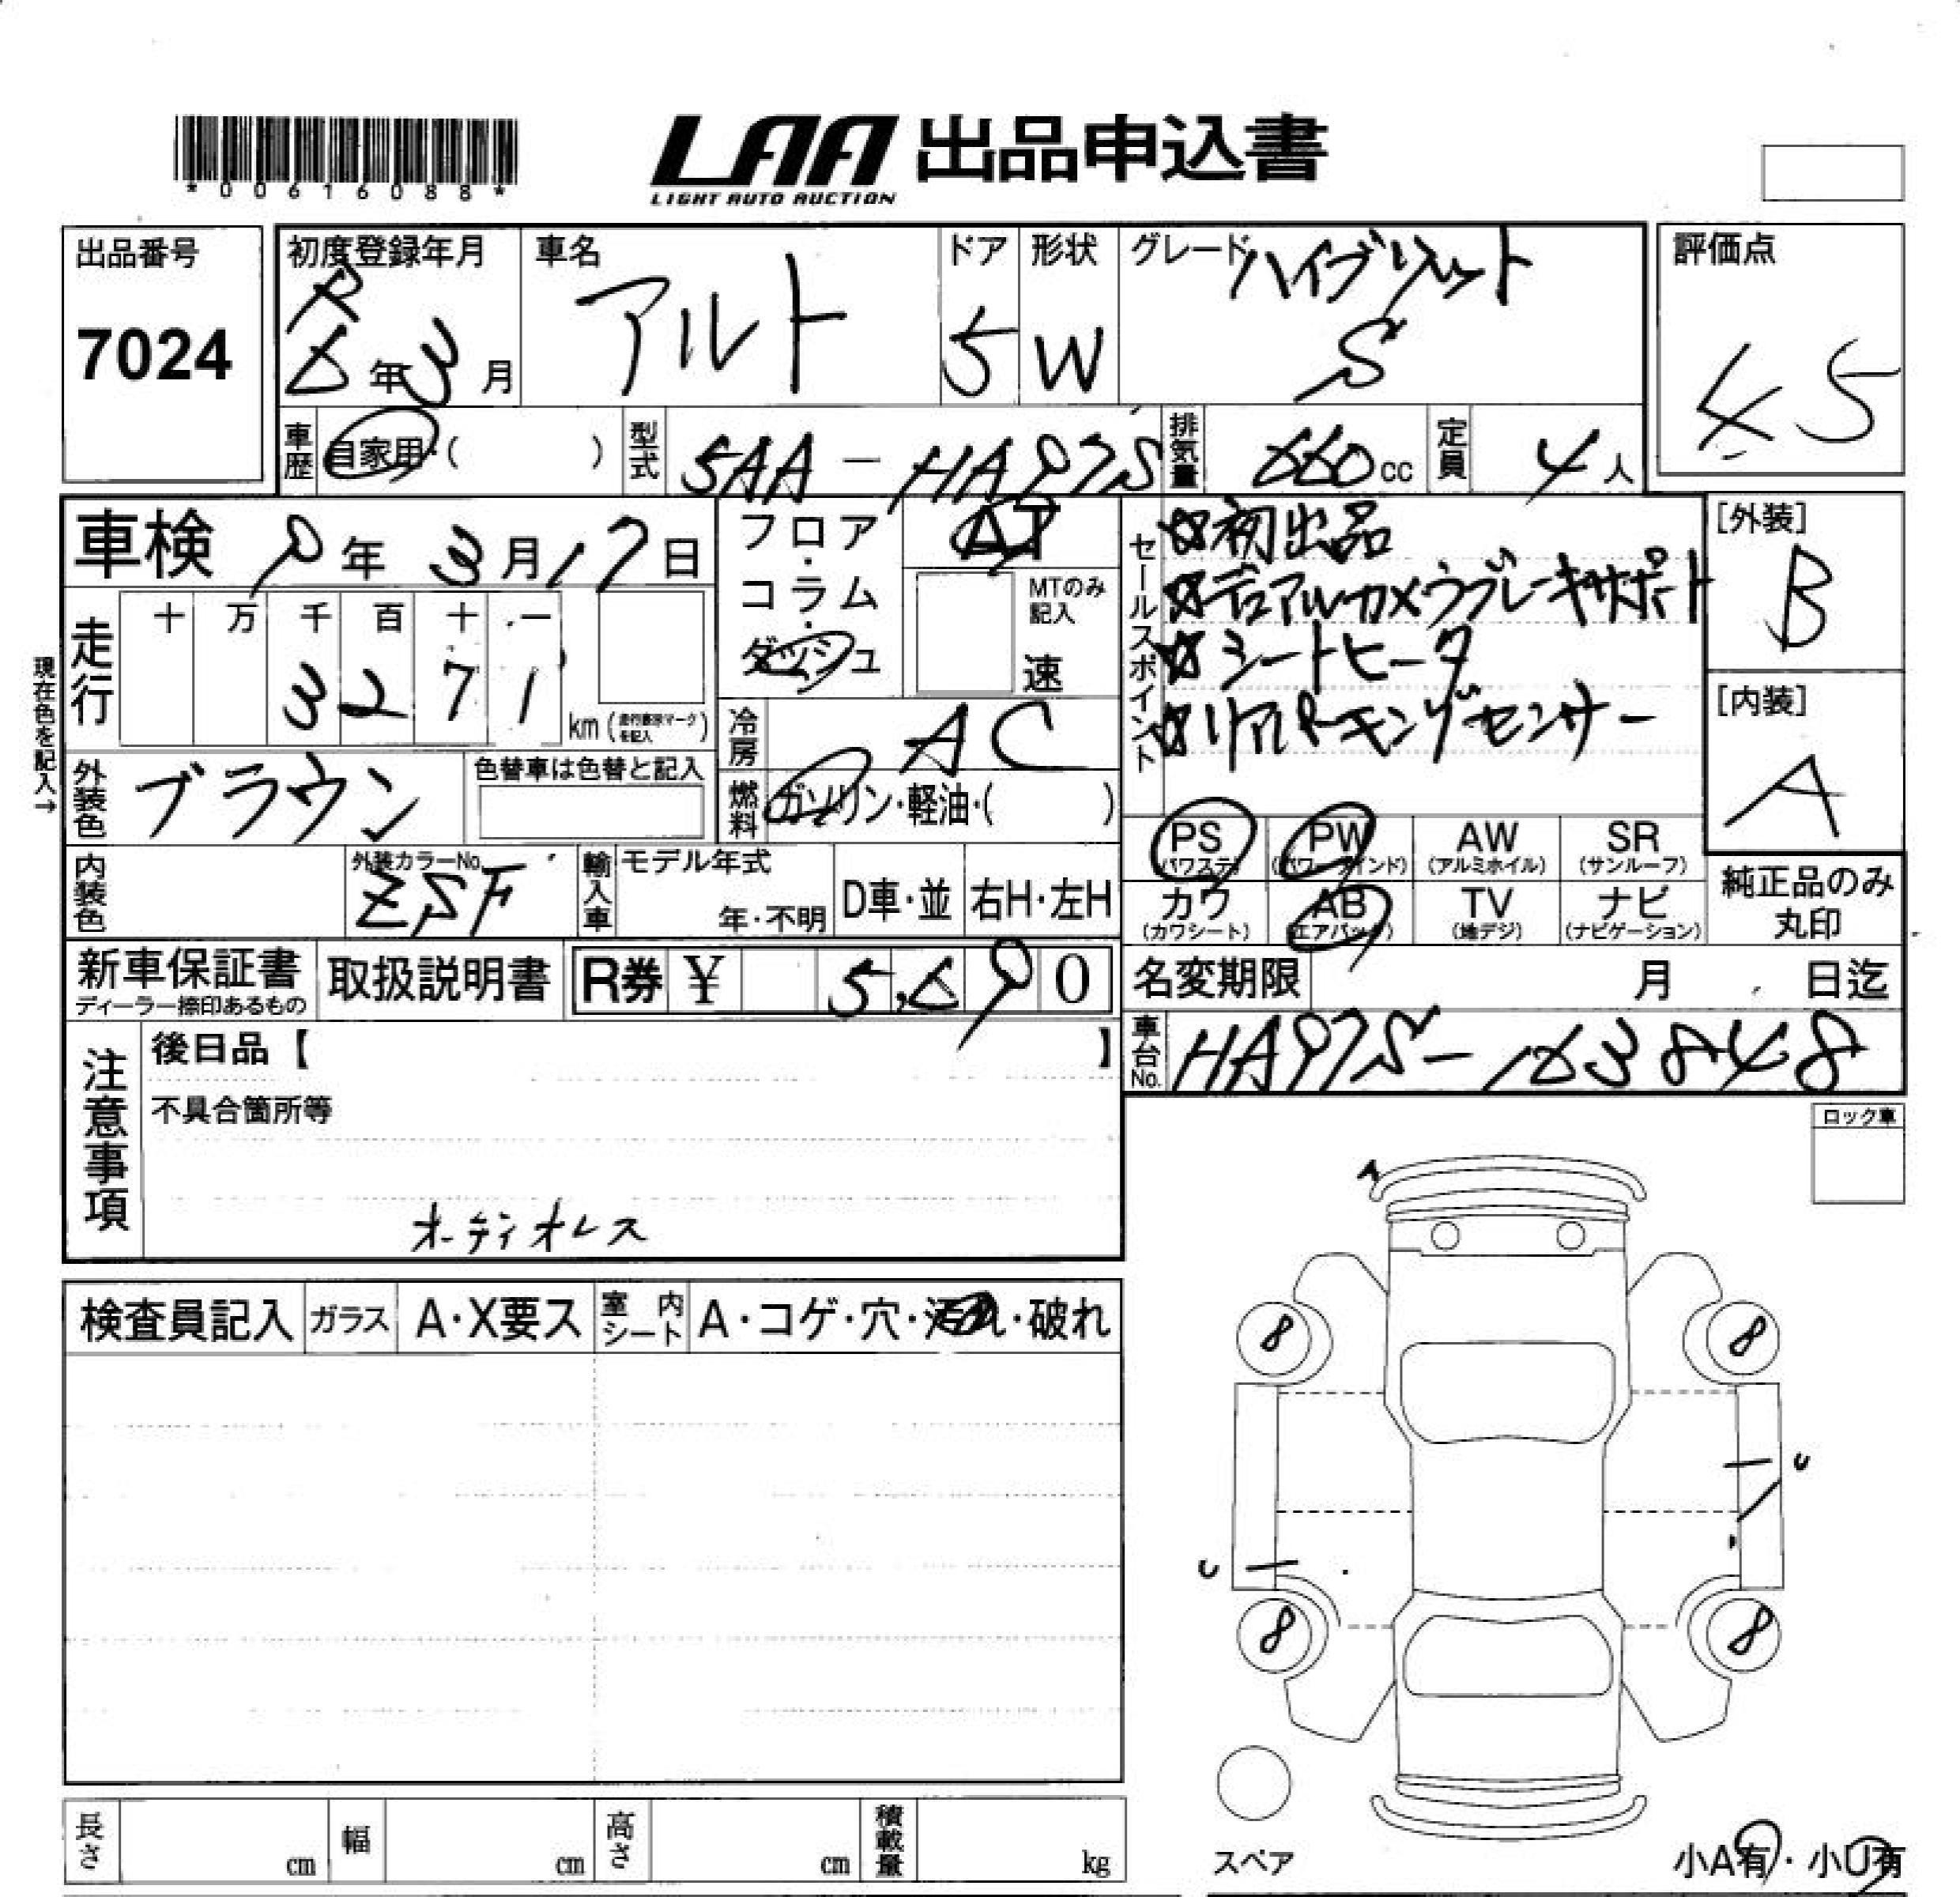 *00616088*
LAA 出品申込書
LIGHT AUTO AUCTION
出品番号
7024
初度登録年月
R
6年3月
車名
アルト
ドア
5
形状
W
グレード
ハイブリット
S
評価点
4.5
車歴
自家用・( )
型式
5AA-HA97S
排気量
660cc
定員
4人
車検
9年3月17日
フロア・コラム・ダッシュ
AT
MTのみ記入
速
セールスポイント
☆初出品
☆デュアルカメラブレーキサポート
☆シートヒータ
☆リアパーキングセンサー
[外装]
B
[内装]
A
現在色を記入→
走行
十 万 千 百 十 一
3 2 7 1
km (走行表示マークを記入)
冷房
AC
外装色
ブラウン
色替車は色替と記入
燃料
ガソリン・軽油・( )
PS
(パワステ)
PW
(パワーウインド)
AW
(アルミホイル)
SR
(サンルーフ)
内装色
外装カラーNo.
ZSF
輸入車
モデル年式
年・不明
D車・並
右H・左H
カワ
(カワシート)
AB
(エアバック)
TV
(地デジ)
ナビ
(ナビゲーション)
純正品のみ
丸印
新車保証書
ディーラー捺印あるもの
取扱説明書
R券 ¥ 5,690
名変期限
月 日迄
車台No.
HA97S-163848
注意事項
後日品【 】
不具合箇所等
オーディオレス
ロック車
検査員記入
ガラス
A・X要ス
室内シート
A・コゲ・穴・汚れ・破れ
A
8
8
U
U
8
8
スペア
長さ
cm
幅
cm
高さ
cm
積載量
kg
小A有・小U有